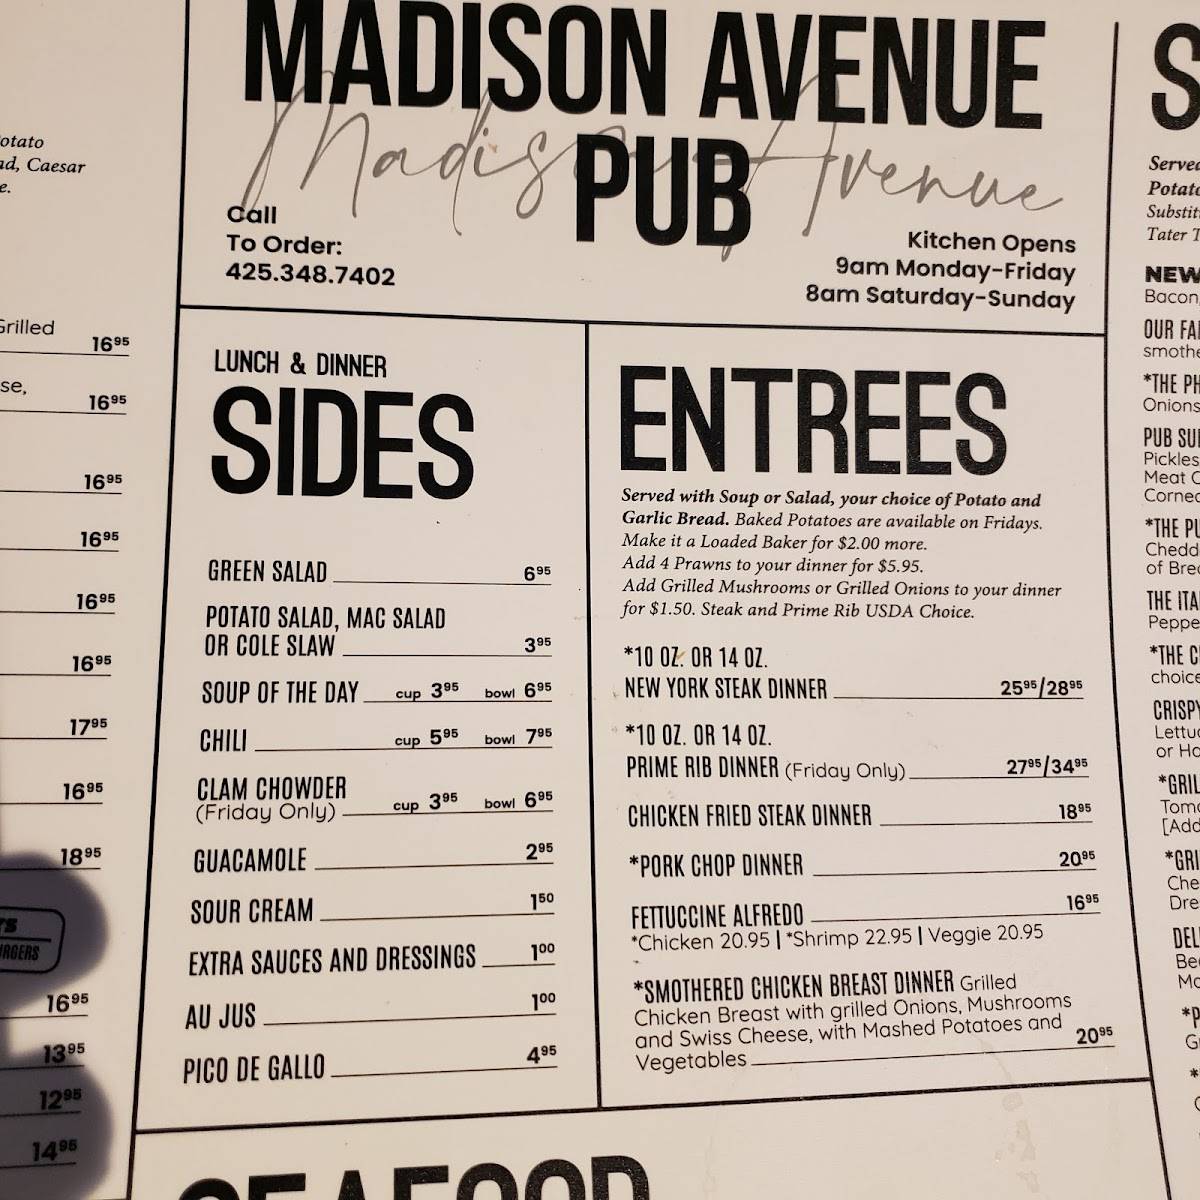 otato
ad, Caesar
e.
Grilled
16⁹⁵
se,
16⁹⁵
16⁹⁵
16⁹⁵
16⁹⁵
16⁹⁵
17⁹⁵
16⁹⁵
18⁹⁵
URGERS
16⁹⁵
13⁹⁵
12⁹⁵
14⁹⁵
MADISON AVENUE
PUB
Madison Avenue
Call
To Order:
425.348.7402
Kitchen Opens
9am Monday-Friday
8am Saturday-Sunday
LUNCH & DINNER
SIDES
GREEN SALAD 6⁹⁵
POTATO SALAD, MAC SALAD
OR COLE SLAW 3⁹⁵
SOUP OF THE DAY cup 3⁹⁵ bowl 6⁹⁵
CHILI cup 5⁹⁵ bowl 7⁹⁵
CLAM CHOWDER
(Friday Only) cup 3⁹⁵ bowl 6⁹⁵
GUACAMOLE 2⁹⁵
SOUR CREAM 1⁵⁰
EXTRA SAUCES AND DRESSINGS 1⁰⁰
AU JUS 1⁰⁰
PICO DE GALLO 4⁹⁵
ENTREES
Served with Soup or Salad, your choice of Potato and
Garlic Bread. Baked Potatoes are available on Fridays.
Make it a Loaded Baker for $2.00 more.
Add 4 Prawns to your dinner for $5.95.
Add Grilled Mushrooms or Grilled Onions to your dinner
for $1.50. Steak and Prime Rib USDA Choice.
*10 OZ. OR 14 OZ.
NEW YORK STEAK DINNER 25⁹⁵/28⁹⁵
*10 OZ. OR 14 OZ.
PRIME RIB DINNER (Friday Only) 27⁹⁵/34⁹⁵
CHICKEN FRIED STEAK DINNER 18⁹⁵
*PORK CHOP DINNER 20⁹⁵
FETTUCCINE ALFREDO 16⁹⁵
*Chicken 20.95 | *Shrimp 22.95 | Veggie 20.95
*SMOTHERED CHICKEN BREAST DINNER Grilled
Chicken Breast with grilled Onions, Mushrooms
and Swiss Cheese, with Mashed Potatoes and
Vegetables 20⁹⁵
SEAFOOD
S
Served
Potato
Substit
Tater T
NEW
Bacon,
OUR FA
smothe
*THE PH
Onions
PUB SU
Pickles
Meat C
Corned
*THE PU
Chedd
of Brea
THE ITA
Peppe
*THE C
choice
CRISPY
Lettuc
or Ha
*GRIL
Toma
[Add
*GRI
Che
Dre
DEL
Be
Mo
*P
G
*